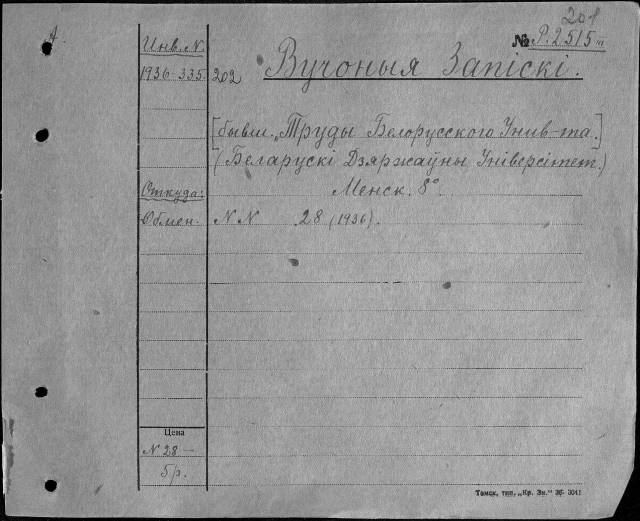 201
А.
Инв. N.
№ Р.2515 III
1936-335.
202
Вучоныя Запіскі.
[бывш. „Труды Белорусского Унив-та.]
(Беларускі Дзяржаўны Універсітэт.)
Откуда:
Менск. 8°.
Обмен.
N N 28 (1936).
Цена
N 28 —
5р.
Томск, тип. „Кр. Зн." Зб. 3041